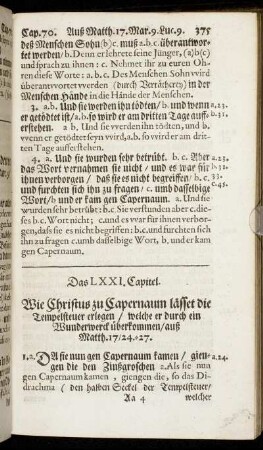 Cap.70. Auß Matth.17. Mar.9. Luc.9. 375
deß Menschen Sohn (b) c. muß a.b.c. überantwor-
tet werden/ b. Denn er lehrete seine Jünger, (a)b(c)
und sprach zu ihnen: c. Nehmet ihr zu euren Oh-
ren diese Worte: a.b.c. Des Menschen Sohn wird
überantwortet werden (durch Verrätherey) in der
Menschen Hände in die Hände der Menschen.
3. a.b. Und sie werden ihn tödten/ b. und wenn a.23.
er getödtet ist/ a.b. so wird er am dritten Tage auff- b. 31.
erstehen. a b. Und sie werden ihn tödten, und b.
wenn er getödtet seyn wird, a.b. so wird er am drit-
ten Tage aufferstehen.
4. a. Und sie wurden sehr betrübt. b.c. Aber a.23.
das Wort vernahmen sie nicht/ und es war für b. 32.
ihnen verborgen/ daß sie es nicht begreiffen/ b.c. 33.
und furchten sich ihn zu fragen/ c. umb dasselbige c.45.
Wort/ b. und er kam gen Capernaum. a. Und sie
wurden sehr betrübt: b.c. Sie verstunden aber c. die-
ses b.c. Wort nicht; c. und es war für ihnen verbor-
gen, daß sie es nicht begriffen: b.c. und furchten sich
ihn zu fragen c. umb dasselbige Wort, b. und er kam
gen Capernaum.
Das LXXI. Capitel.
Wie Christus zu Capernaum lässet die
Tempelsteuer erlegen/ welche er durch ein
Wunderwerck überkommen/ auß
Matth.17/24.-27.
1. a. DA sie nun gen Capernaum kamen/ gien- a.24.
gen die den Zinßgroschen a. Als sie nun
gen Capernaum kamen, giengen die, so das Di-
drachma (den halben Seckel der Tempelsteuer/
Aa 4 welcher